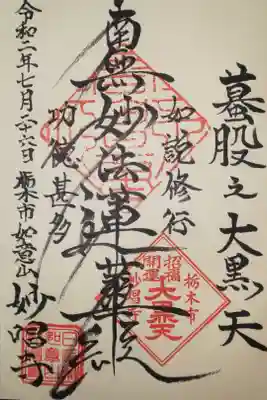 蟇股之大黒天
如説修行
南無妙法蓮華経
功徳甚多
令和二年七月二十六日 栃木市 如意山 妙唱寺
栃木市
招福
開運
大黒天
妙唱寺